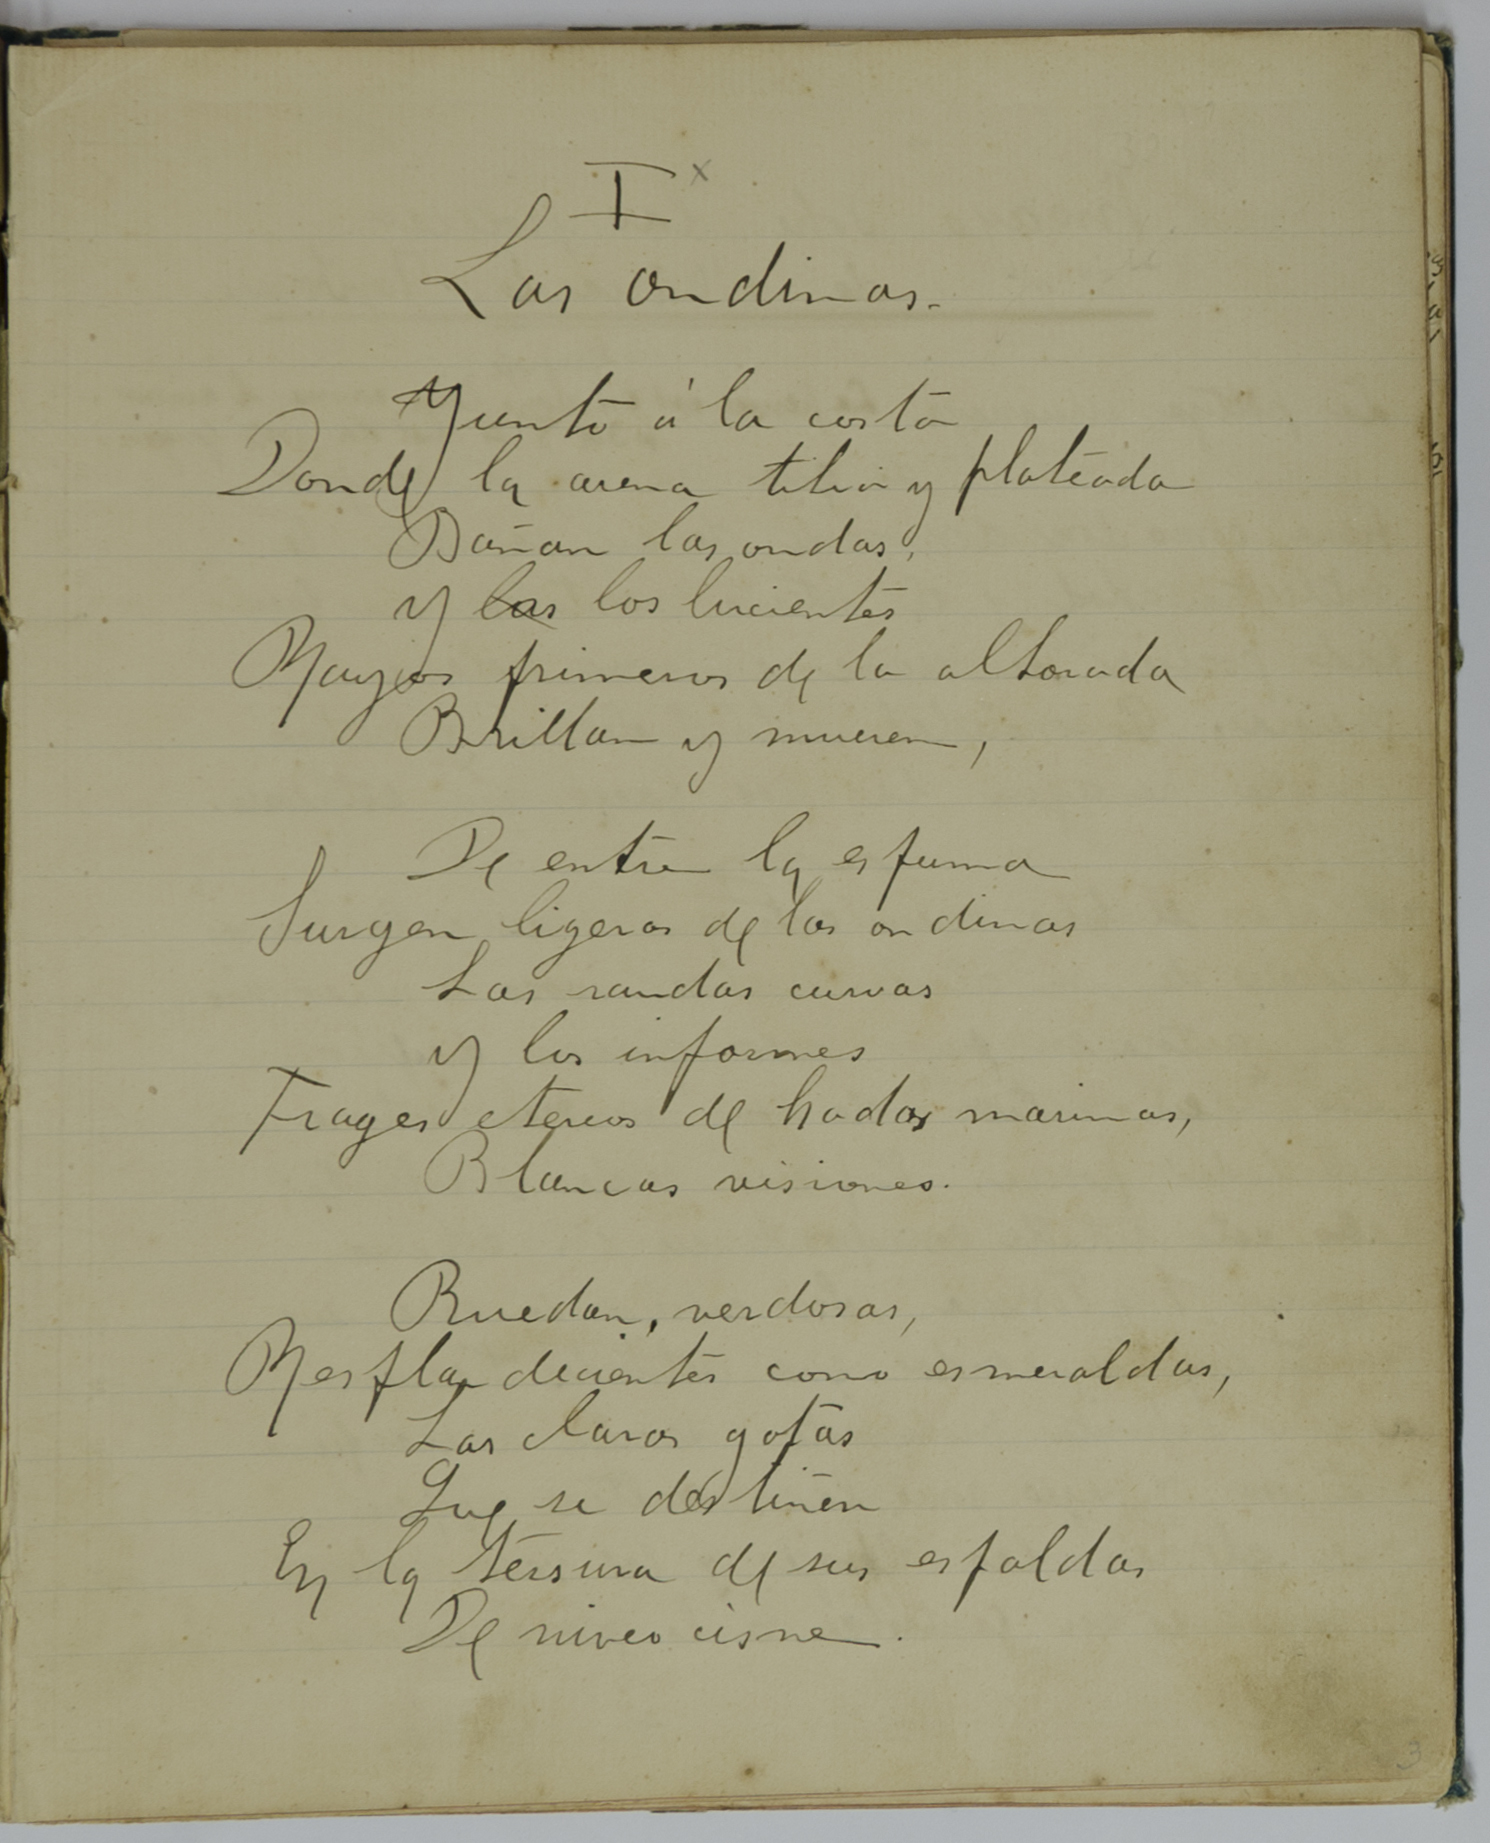 I x
Las ondinas.
Junto á la costa
Donde la arena tibia y plateada
Bañan las ondas,
y las los lucientes
Rayos primeros de la alborada
Brillan y mueren,
De entre la espuma
Surgen ligeras de las ondinas
Las raudas curvas
y los informes
Trages etereos de hadas marinas,
Blancas visiones.
Ruedan, verdosas,
Resplandecientes como esmeraldas,
Las claras gotas
Que se destiñen
En la tersura de sus espaldas
De niveo cisne.
3